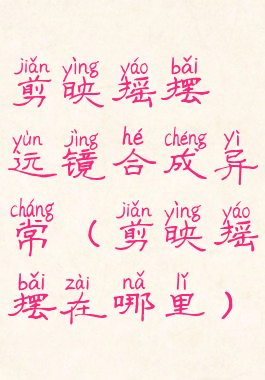 jiǎn yìng yáo bǎi
剪映摇摆
yùn jìng hé chéng yì
运镜合成异
cháng jiǎn yìng yáo
常(剪映摇
bǎi zài nǎ lǐ
摆在哪里)